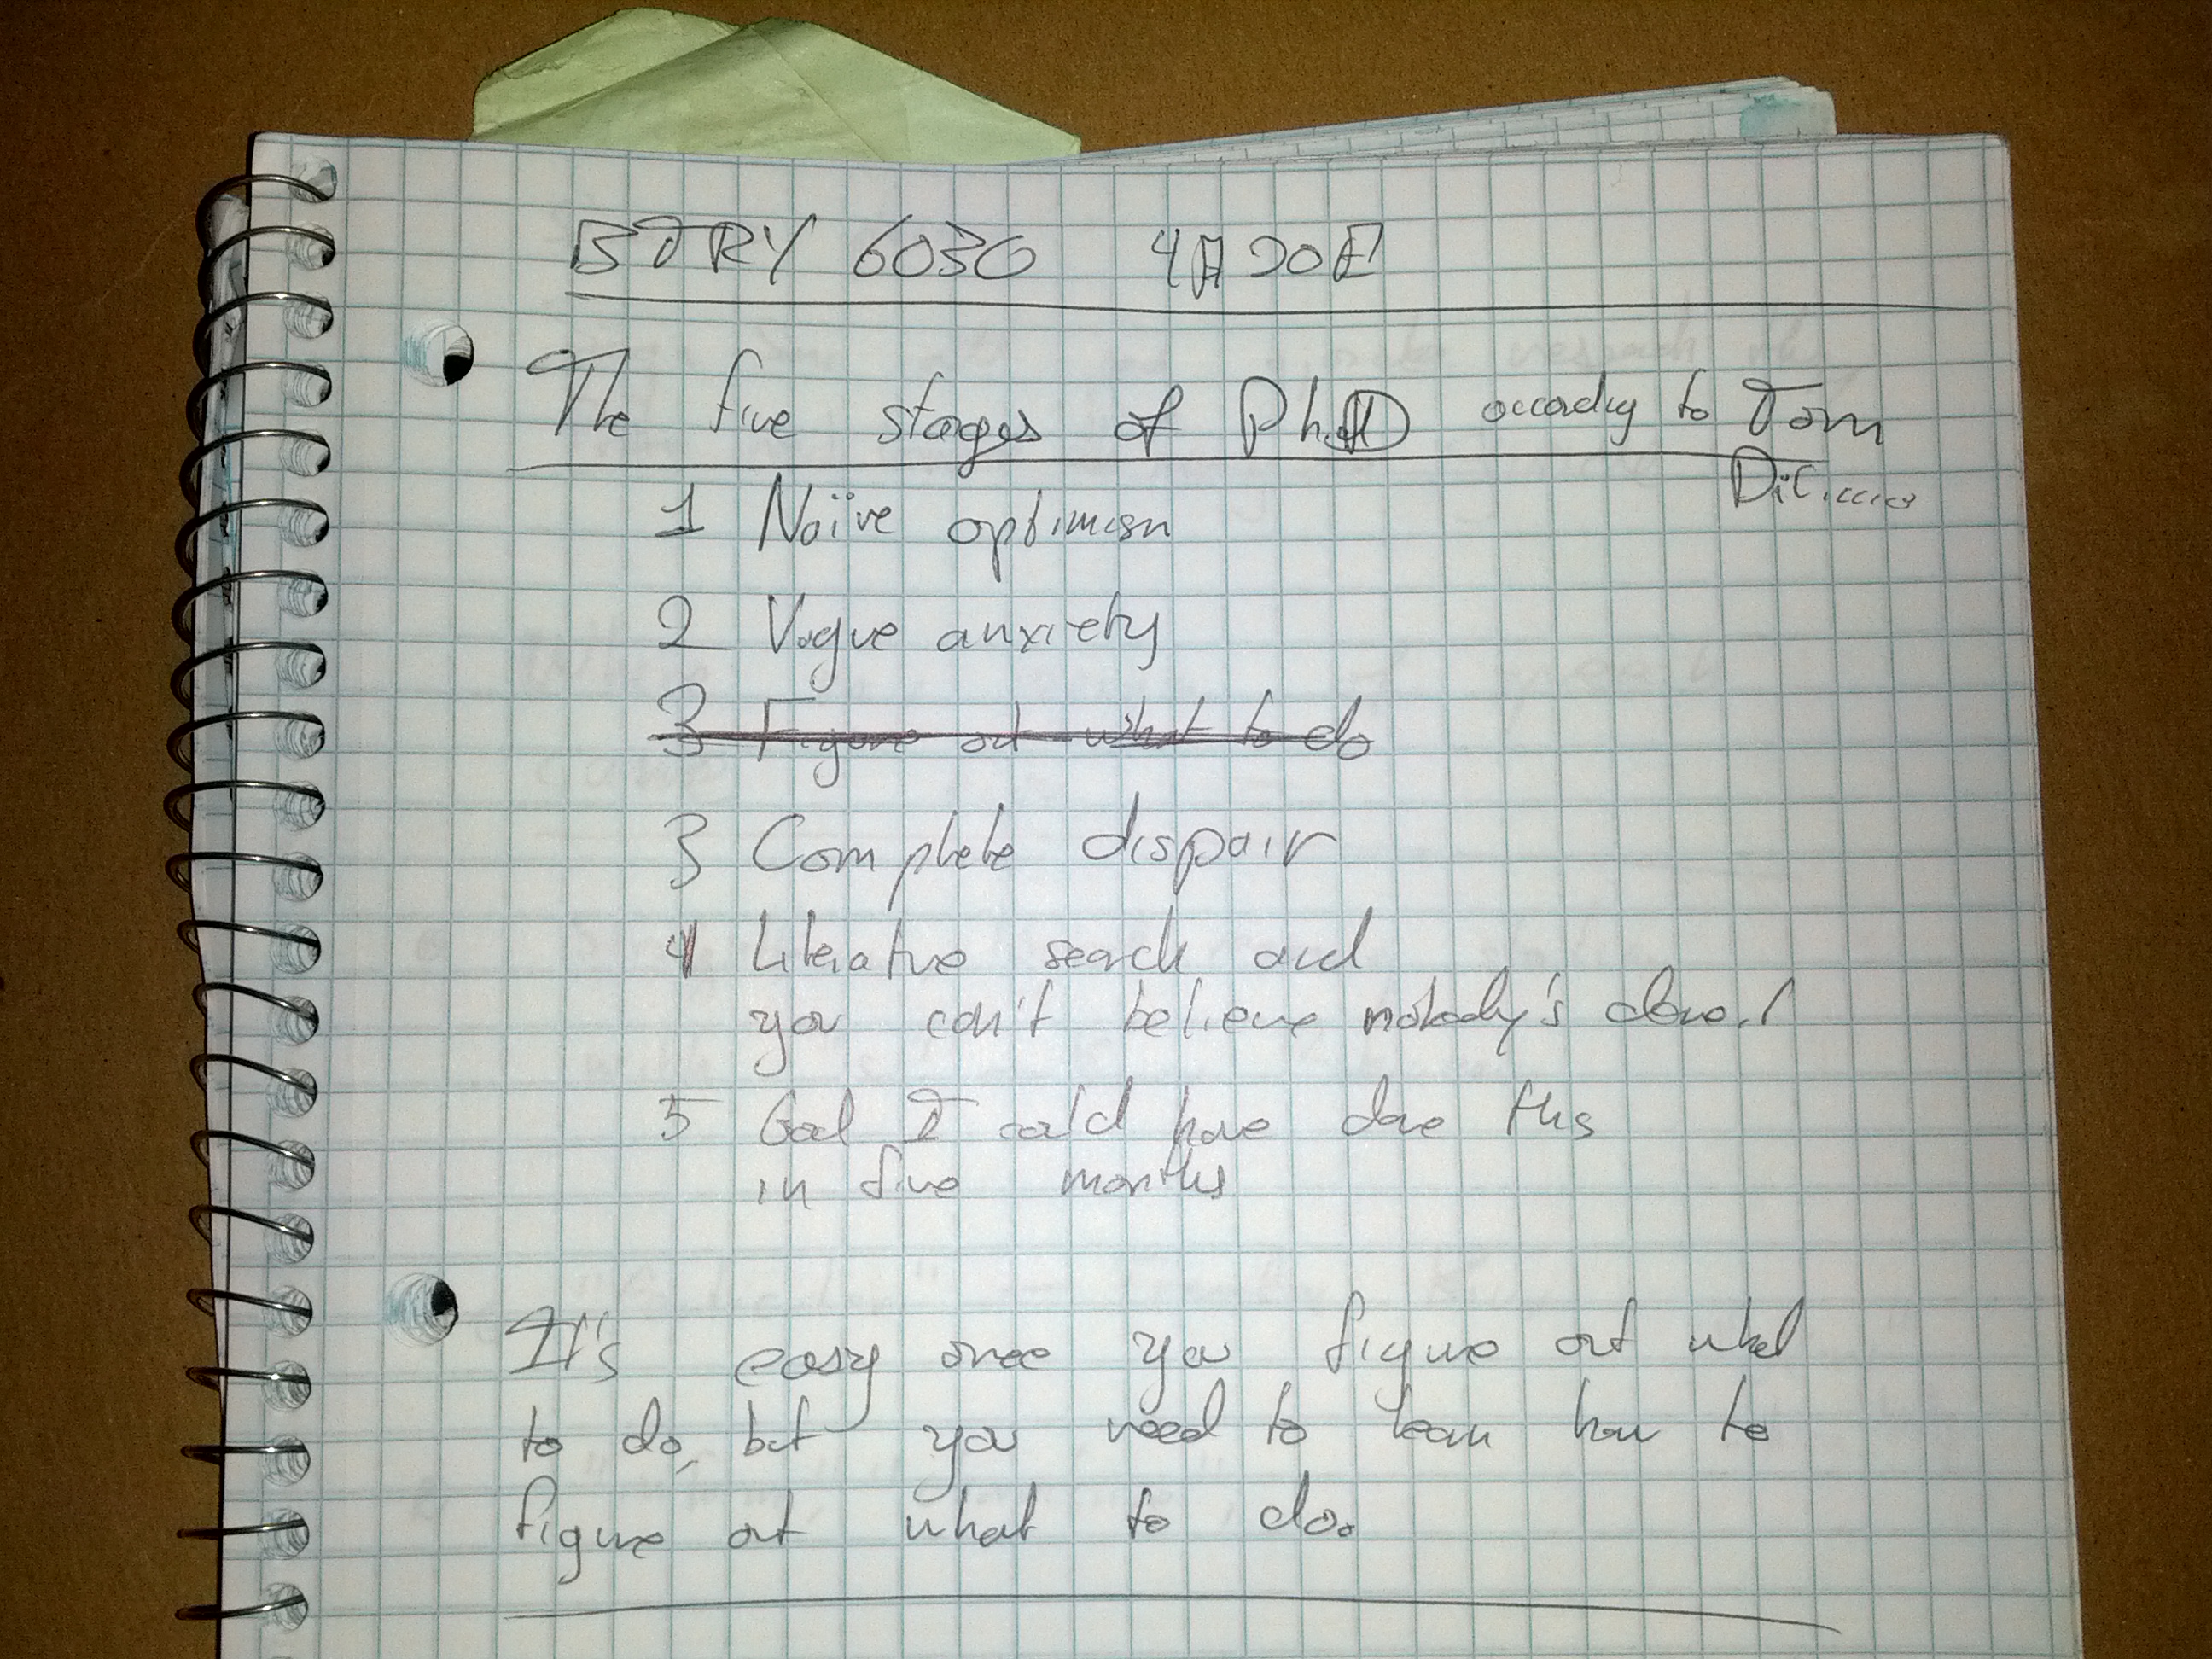 BTRY 6030
The five stages of Ph.D according to Tom
1 Naïve optimism
2 Vague anxiety
3 Figure out what to do
3 Complete dispair
4 Literature search and
you can't believe nobody's done
5 God I could have done this
in five months
It's easy once you figure out what
to do, but you need to learn how to
figure out what to do.